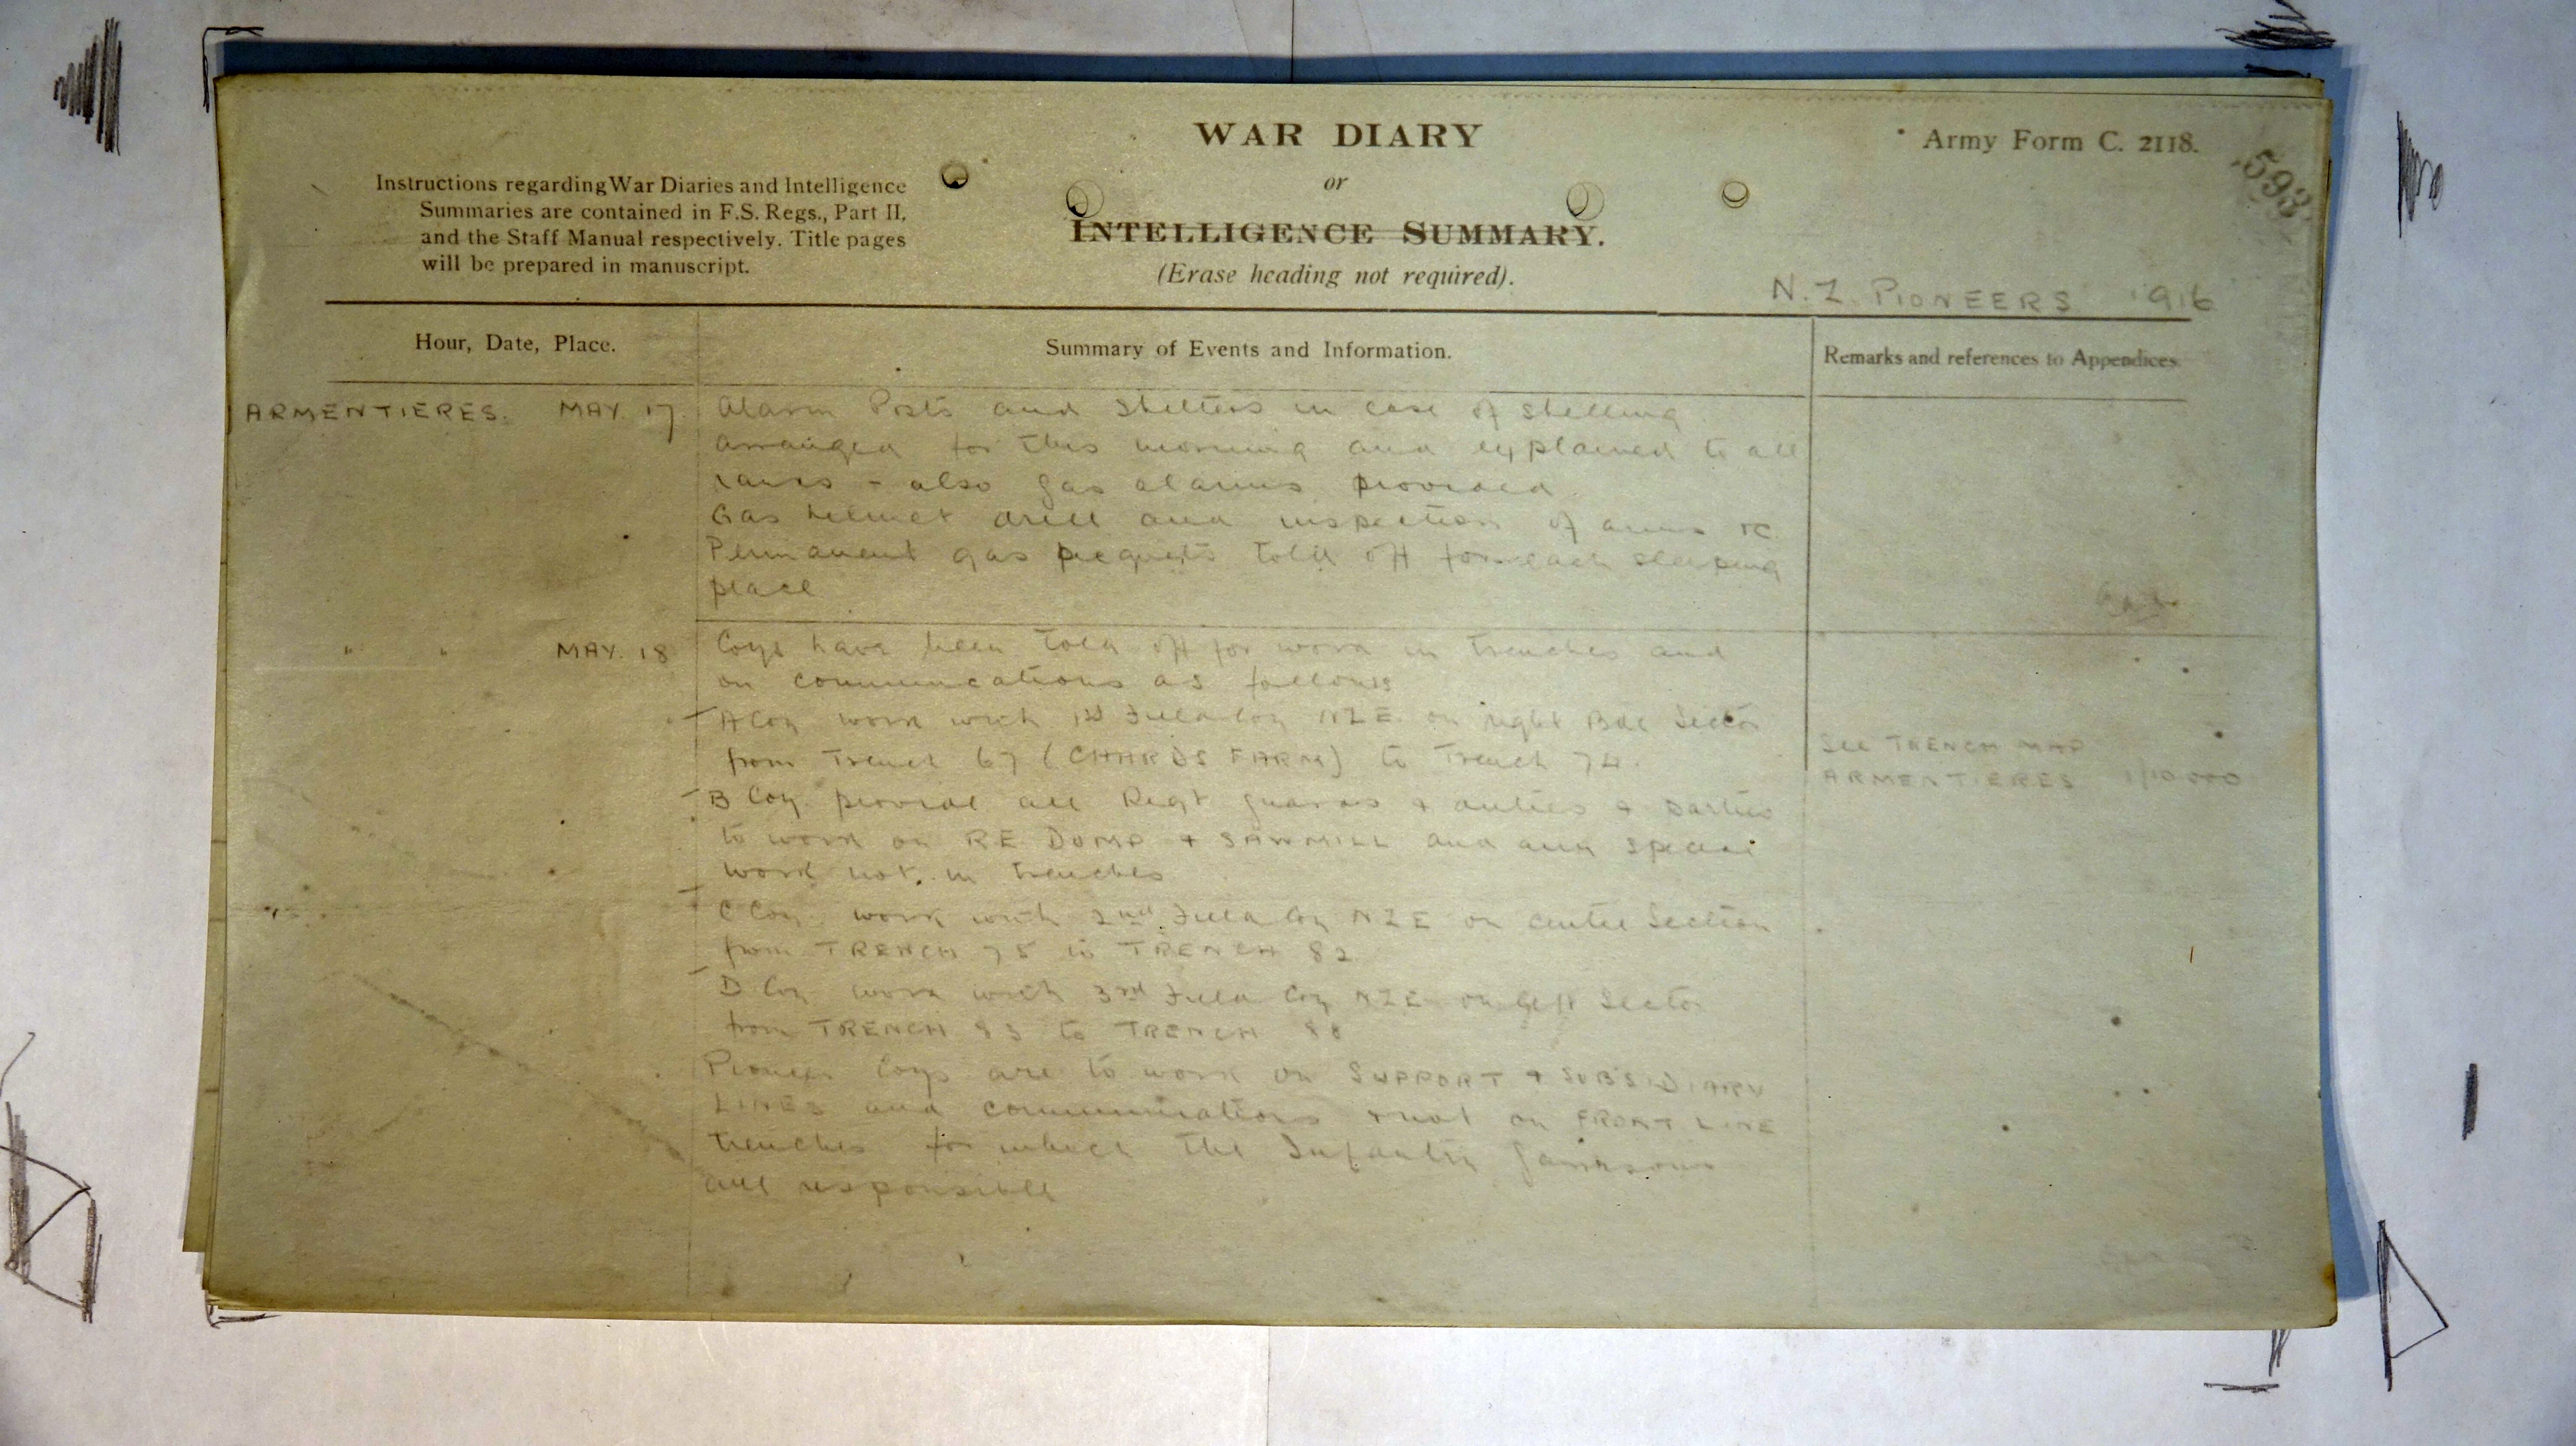 WAR DIARY
or
INTELLIGENCE SUMMARY.
(Erase heading not required).
Army Form C. 2118.
593
Instructions regarding War Diaries and Intelligence
Summaries are contained in F.S. Regs., Part II,
and the Staff Manual respectively. Title pages
will be prepared in manuscript.
N.Z. PIONEERS 1916
Hour, Date, Place.
Summary of Events and Information.
Remarks and references to Appendices
ARMENTIERES. MAY. 17
Alarm Posts and Shelters in case of shelling
arranged for this morning and explained to all
ranks - also gas alarms provided
Gas helmet drill and inspection of arms &c
Permanent gas picquets told off for each sleeping
place
" " MAY. 18
Coys have been told off for work in trenches and
on communcations as follows
A Coy work with 1st Field Coy NZE on right Bde Sector
from Trench 67 (CHARDS FARM) to Trench 74.
See TRENCH MAP
ARMENTIERES 1/10000
B Coy provide all Regt guards & duties & parties
to work on RE DUMP & SAWMILL and any special
work not in trenches
C Coy work with 2nd Field Coy NZE on centre Section
from TRENCH 75 to TRENCH 82
D Coy work with 3rd Field Coy NZE on left Sector
from TRENCH 83 to TRENCH 88
Pioneer Coys are to work on SUPPORT & SUBSIDIARY
LINES and communications & not on FRONT LINE
trenches for which the Infantry garrisons
are responsible